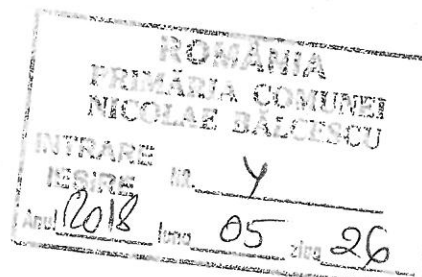 ROMÂNIA
PRIMĂRIA COMUNEI
NICOLAE BĂLCESCU
INTRARE
IEŞIRE Nr. y
Anul 2018 luna 05 ziua 26